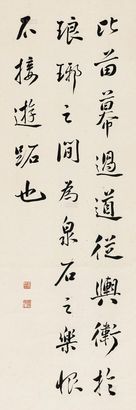 比苗幕過道從輿衛於
琅琊之間為泉石之樂恨
不接遊跖也